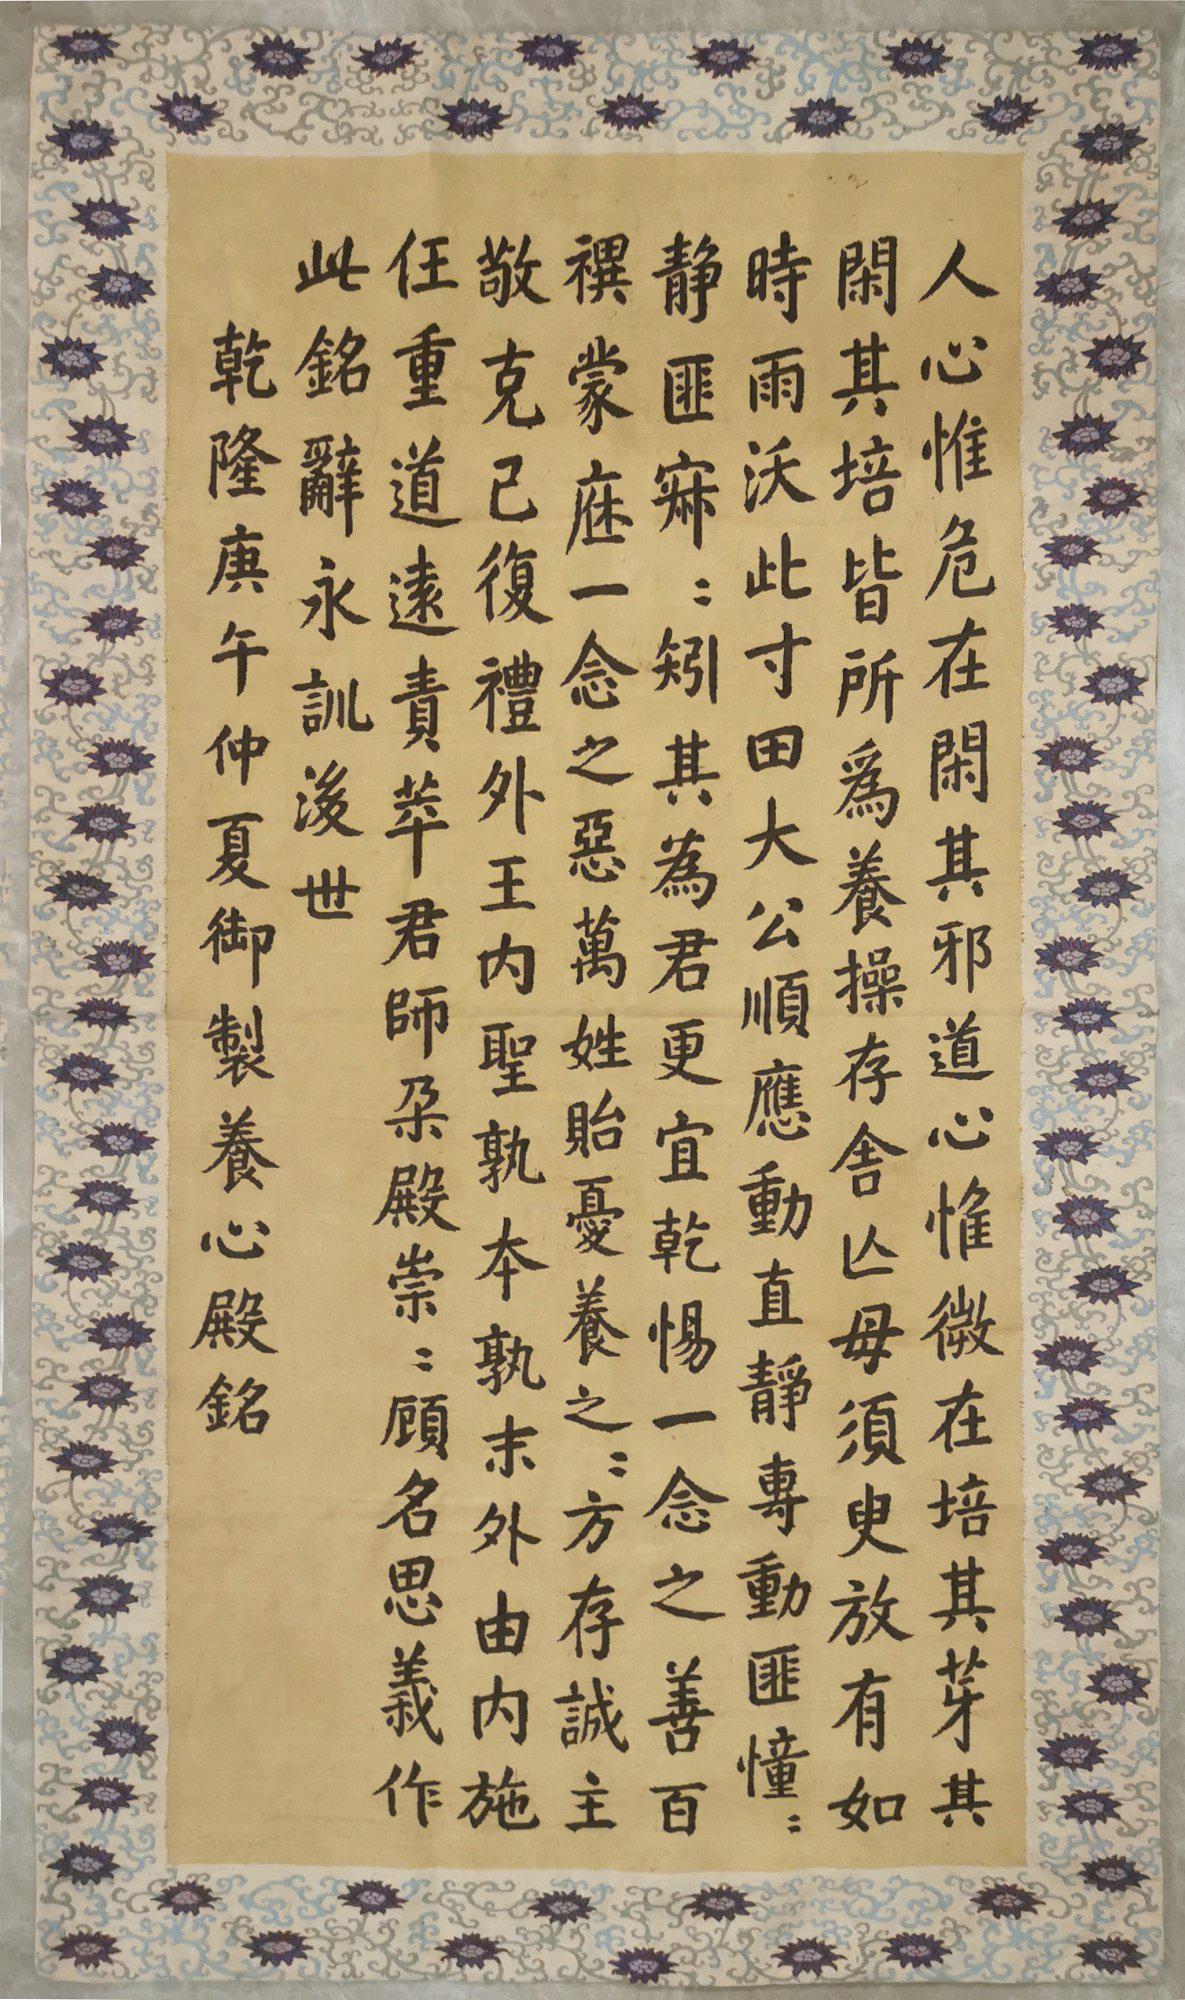 人心惟危在閑其邪道心惟微在培其芽其
閑其培皆所為養操存舍亾毋須臾放有如
時雨沃此寸田大公順應動直靜專動匪憧〻
靜匪寂〻矧其為君更宜乾惕一念之善百
禩蒙庥一念之惡萬姓貽憂養之〻方存誠主
敬克己復禮外王内聖孰本孰末外由内施
任重道遠責萃君師朶殿崇〻顧名思義作
此銘辭永訓後世
乾隆庚午仲夏御製養心殿銘